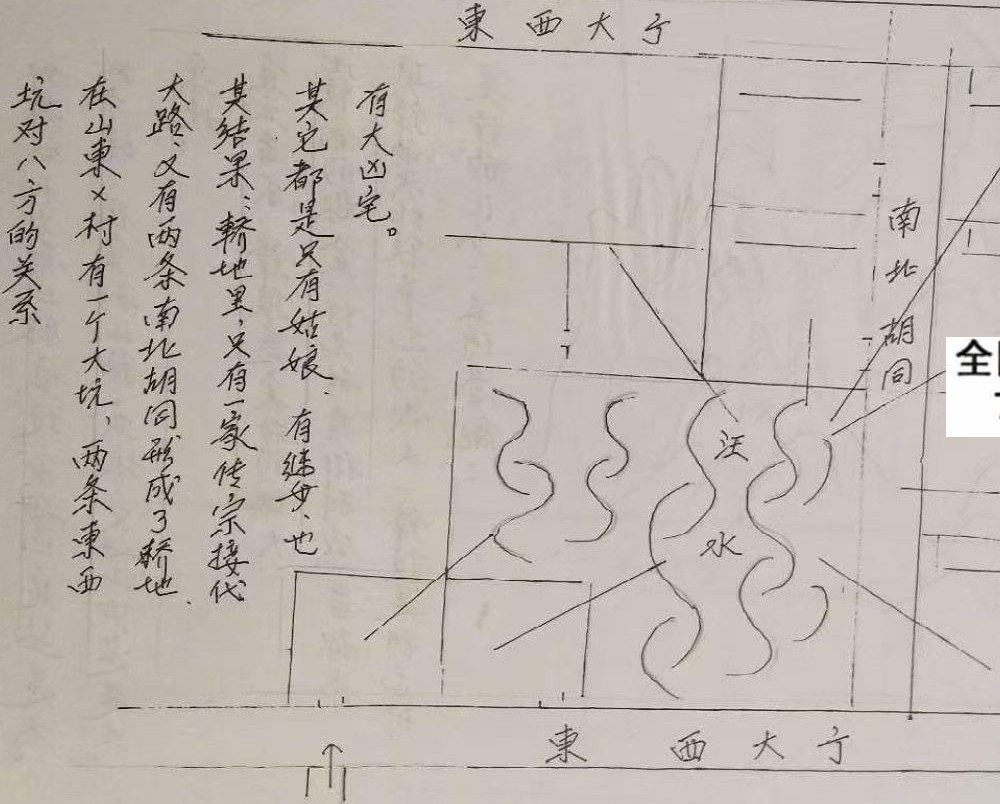 東西大亍
坑对八方的关系
在山東×村有一个大坑，两条東西
大路、又有两条南北胡同形成了轿地、
其结果：轿地里，只有一家传宗接代
其它都是只有姑娘、有继女、也
有大凶宅。
南北胡同
汪水
全
東西大亍